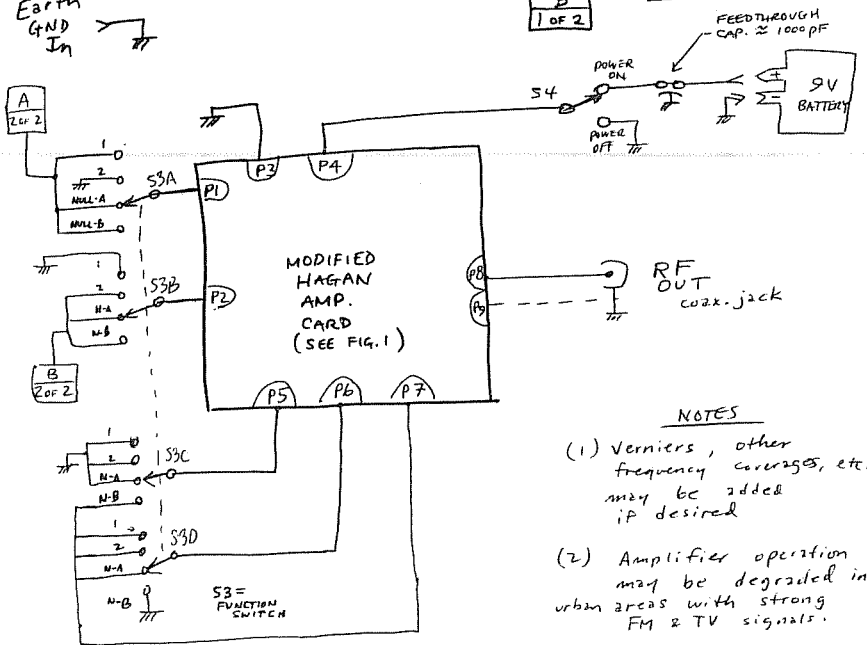 Earth
GND
In
B
1 OF 2
FEEDTHROUGH
CAP. ≈ 1000 pF
POWER
ON
S4
+
−
9V
BATTERY
POWER
OFF
A
2 OF 2
1
2
NULL-A
NULL-B
S3A
P1
P3
P4
1
2
N-A
N-B
S3B
P2
B
2 OF 2
MODIFIED
HAGAN
AMP.
CARD
(SEE FIG. 1)
P8
P9
RF
OUT
coax. jack
P5
P6
P7
1
2
N-A
N-B
S3C
1
2
N-A
N-B
S3D
S3 =
FUNCTION
SWITCH
NOTES
(1) Verniers, other
frequency coverages, etc.
may be added
if desired
(2) Amplifier operation
may be degraded in
urban areas with strong
FM & TV signals.